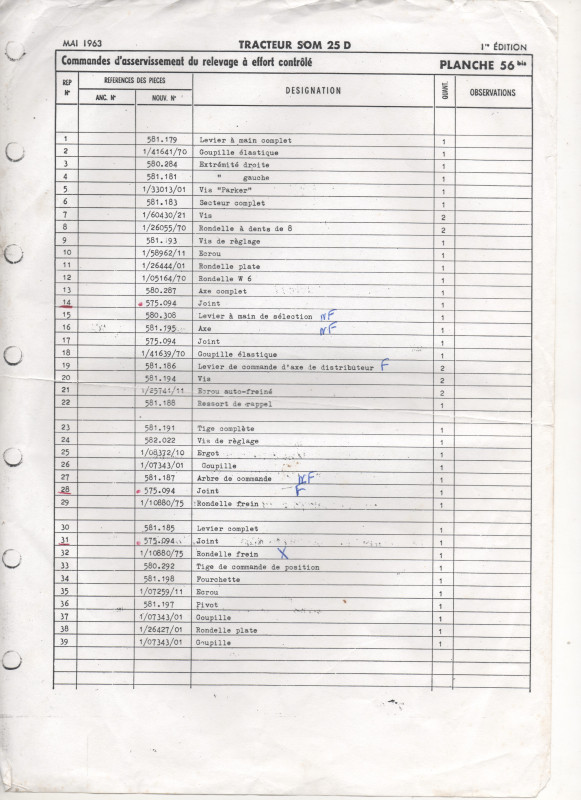 MAI 1963 TRACTEUR SOM 25 D 1re ÉDITION
Commandes d'asservissement du relevage à effort contrôlé PLANCHE 56 bis
REP N° REFERENCES DES PIECES DESIGNATION QUANT. OBSERVATIONS
ANC. N° NOUV. N°
1 581.179 Levier à main complet 1
2 1/41641/70 Goupille élastique 1
3 580.284 Extrémité droite 1
4 581.181 " gauche 1
5 1/33013/01 Vis "Parker" 1
6 581.183 Secteur complet 1
7 1/60430/21 Vis 2
8 1/26055/70 Rondelle à dents de 8 2
9 581. 93 Vis de règlage 1
10 1/58962/11 Ecrou 1
11 1/26444/01 Rondelle plate 1
12 1/05164/70 Rondelle W 6 1
13 580.287 Axe complet 1
14 575.094 Joint 1
15 580.308 Levier à main de sélection NF 1
16 581.195 Axe NF 1
17 575.094 Joint 1
18 1/41639/70 Goupille élastique 1
19 581.186 Levier de commande d'axe de distributeur F 2
20 581.194 Vis 2
21 1/25741/11 Ecrou auto-freiné 2
22 581.188 Ressort de rappel 1
23 581.191 Tige complète 1
24 582.022 Vis de règlage 1
25 1/08372/10 Ergot 1
26 1/07343/01 Goupille 1
27 581.187 Arbre de commande NF 1
28 575.094 Joint F 1
29 1/10880/75 Rondelle frein 1
30 581.185 Levier complet 1
31 575.094 Joint 1
32 1/10880/75 Rondelle frein X 1
33 580.292 Tige de commande de position 1
34 581.198 Fourchette 1
35 1/07259/11 Ecrou 1
36 581.197 Pivot 1
37 1/07343/01 Goupille 1
38 1/26427/01 Rondelle plate 1
39 1/07343/01 Goupille 1